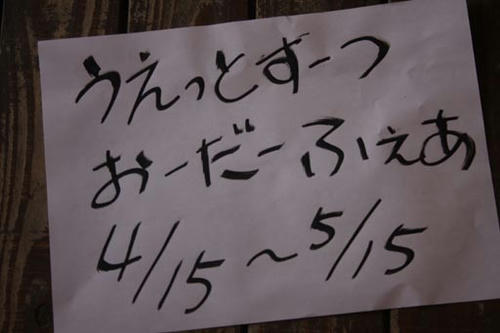 うえっとすーつ
おーだーふぇあ
4/15～5/15